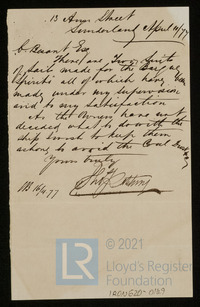 13 Ann Street
Sunderland April 16/77
G Besant Esq
There are Two Suits
of Sail made for the Barque
Spirits all of which have been
made under my supervision
and to my Satisfaction
As the Owners have not
decided what to do with the
ship I wish to keep them
ashore, to avoid the Coal Dust
Yours truly
16/4/77
© 2021
LR
Lloyd's Register
Foundation